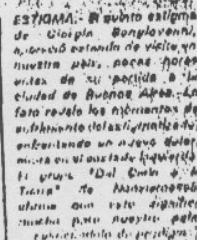 ESTIGMA.- El quinto estigma
de Giorgio Bongiovanni,
apareció estando de visita en
nuestro país, pocas horas
antes de su partida a la
ciudad de Buenos Aires. La
foto revela los momentos de
sufrimiento del estigmatizado
enfrentando un nuevo dolor
en el costado izquierdo.
El grupo "Del Cielo a la
Tierra" de
que esto significa
mucho para nuestro país